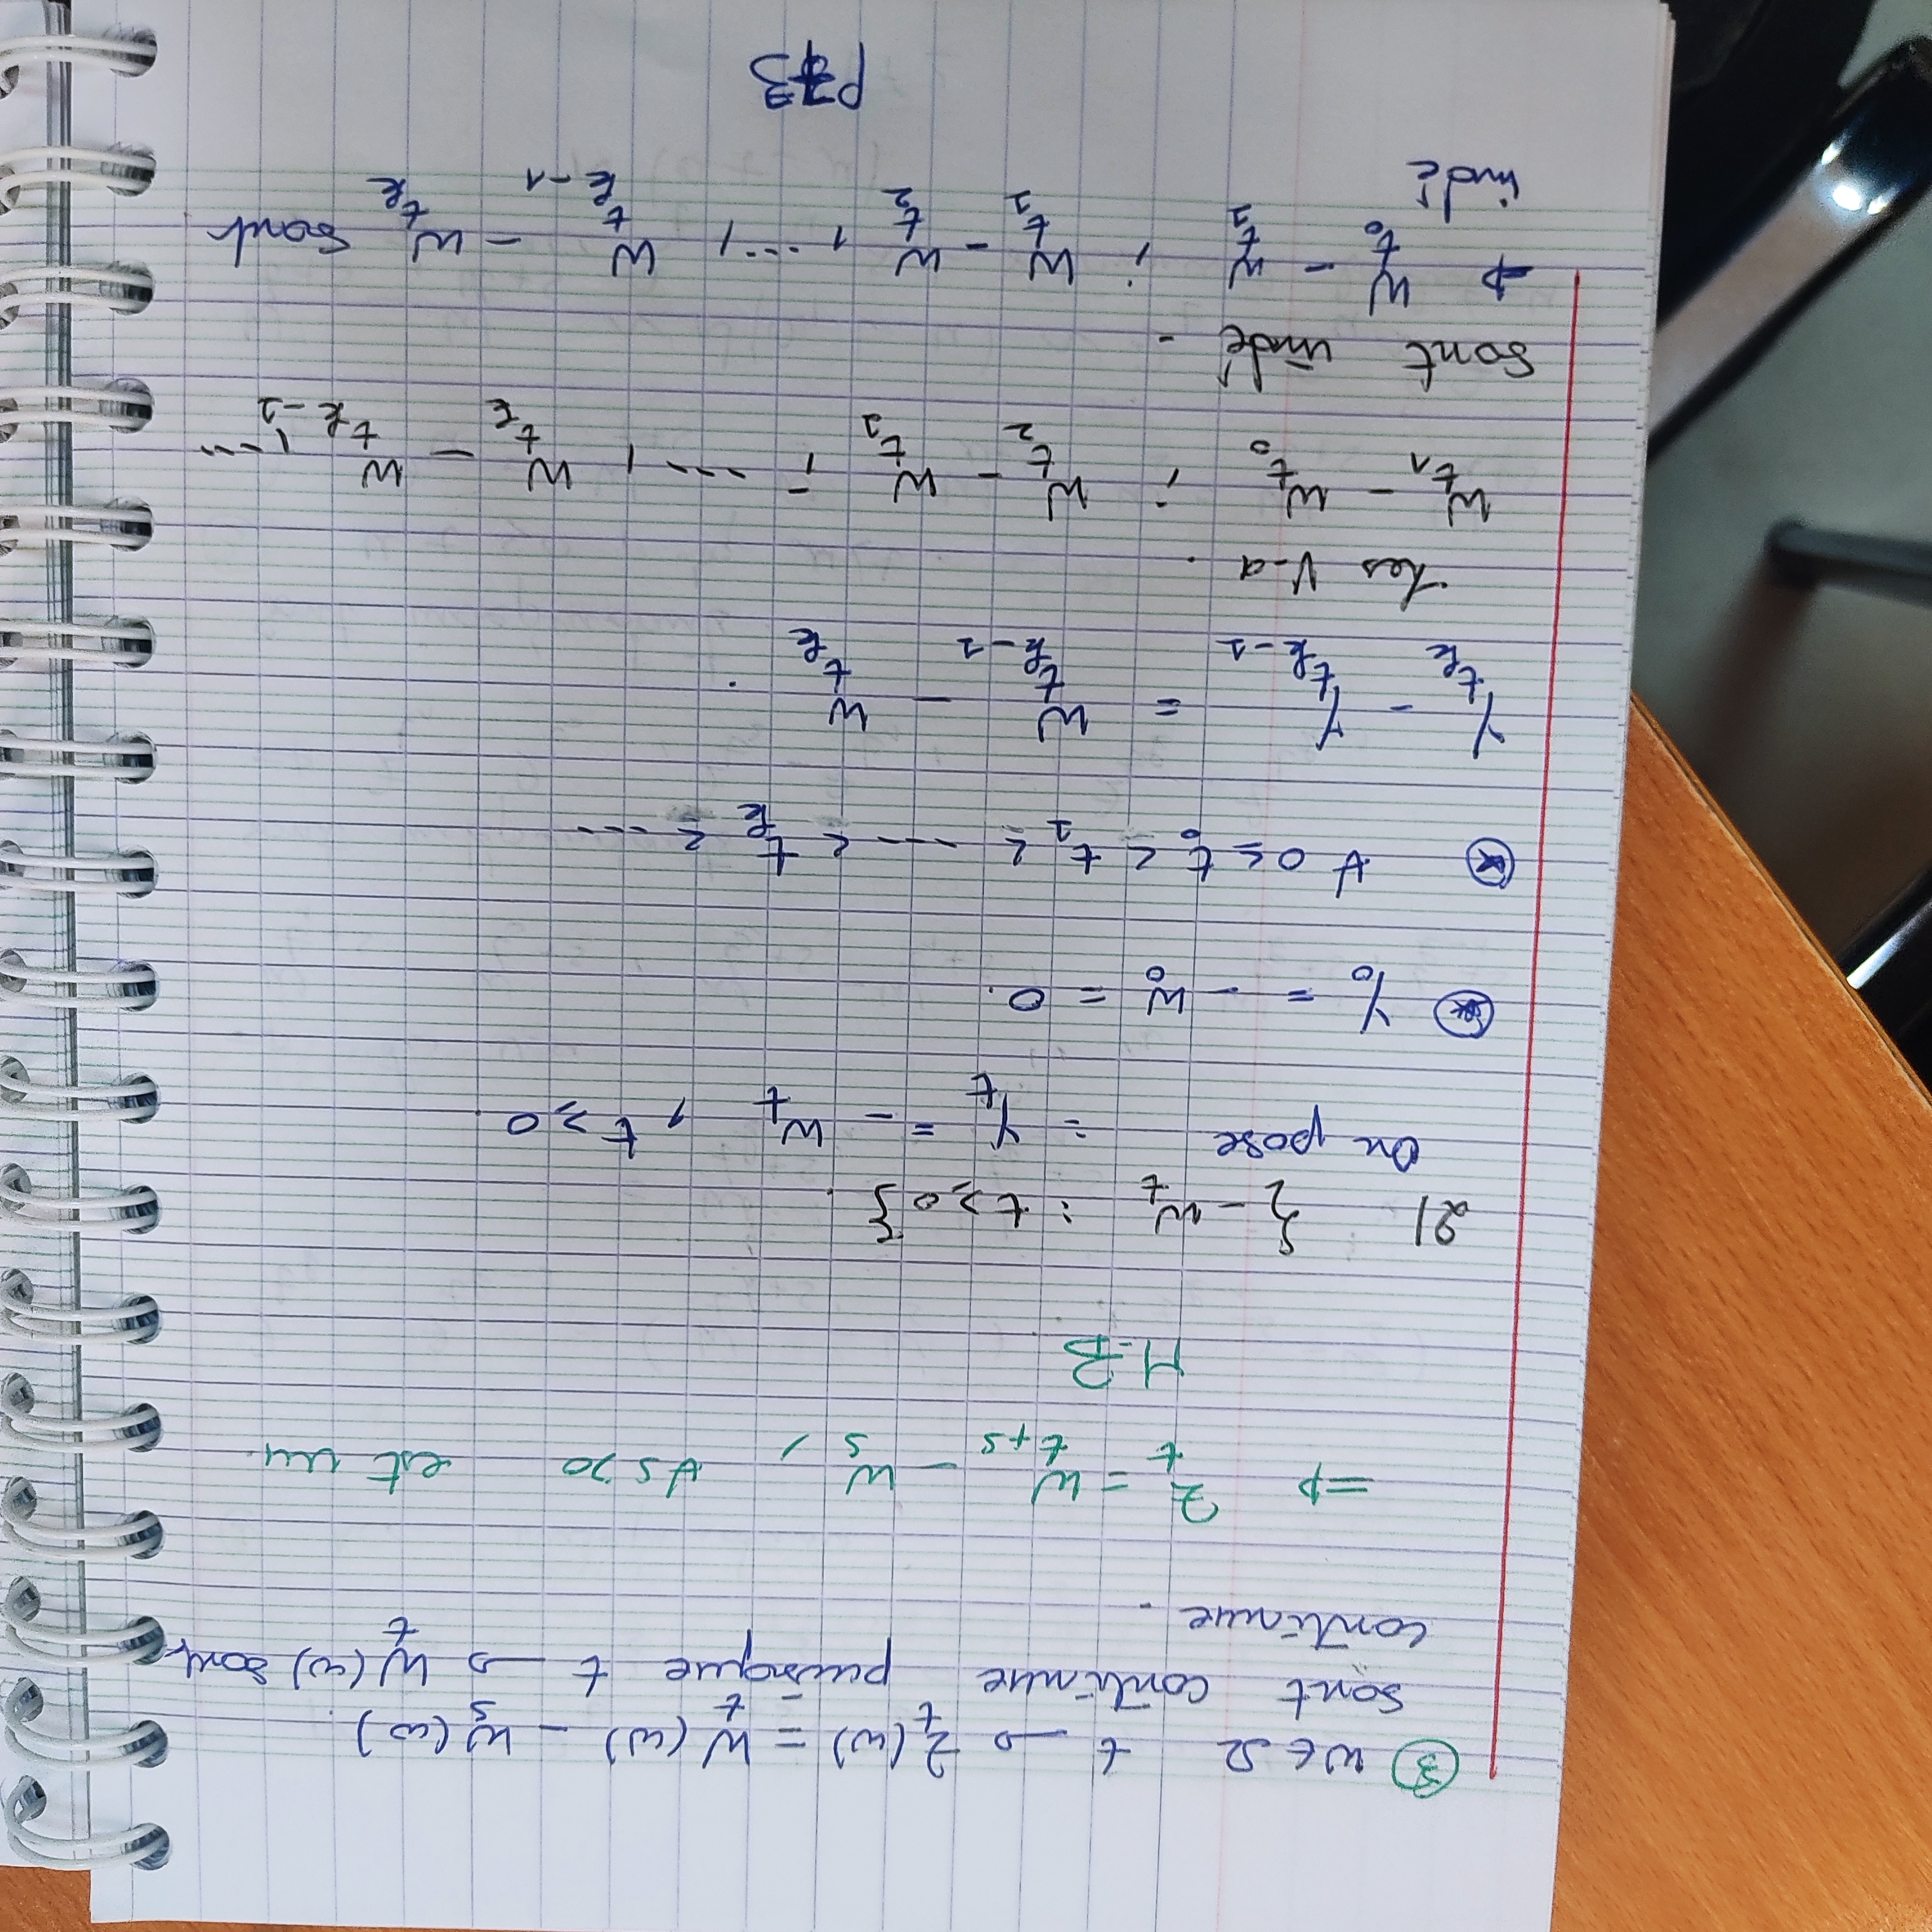 ③ w ∈ Ω t → Z_t(ω) = W_t(ω) - W_s(ω).
sont continue puisque t → W_t(ω) sont
continue.
=> Z_t = W_{t+s} - W_s, ∀ s > 0 est un
M-B
2) {-W_t : t ≥ 0}.
On pose : Y_t = - W_t, t ≥ 0.
⊛ Y_0 = - W_0 = 0.
⊛ ∀ 0 ≤ t_0 < t_1 < ---- < t_k < ...
Y_{t_k} - Y_{t_{k-1}} = W_{t_{k-1}} - W_{t_k}.
Les V-a.
W_{t_1} - W_{t_0} ; W_{t_2} - W_{t_1} ; ---, W_{t_k} - W_{t_{k-1}}, ---
sont indé -
=> W_{t_0} - W_{t_1} ; W_{t_1} - W_{t_2}, ---, W_{t_{k-1}} - W_{t_k} sont
indé